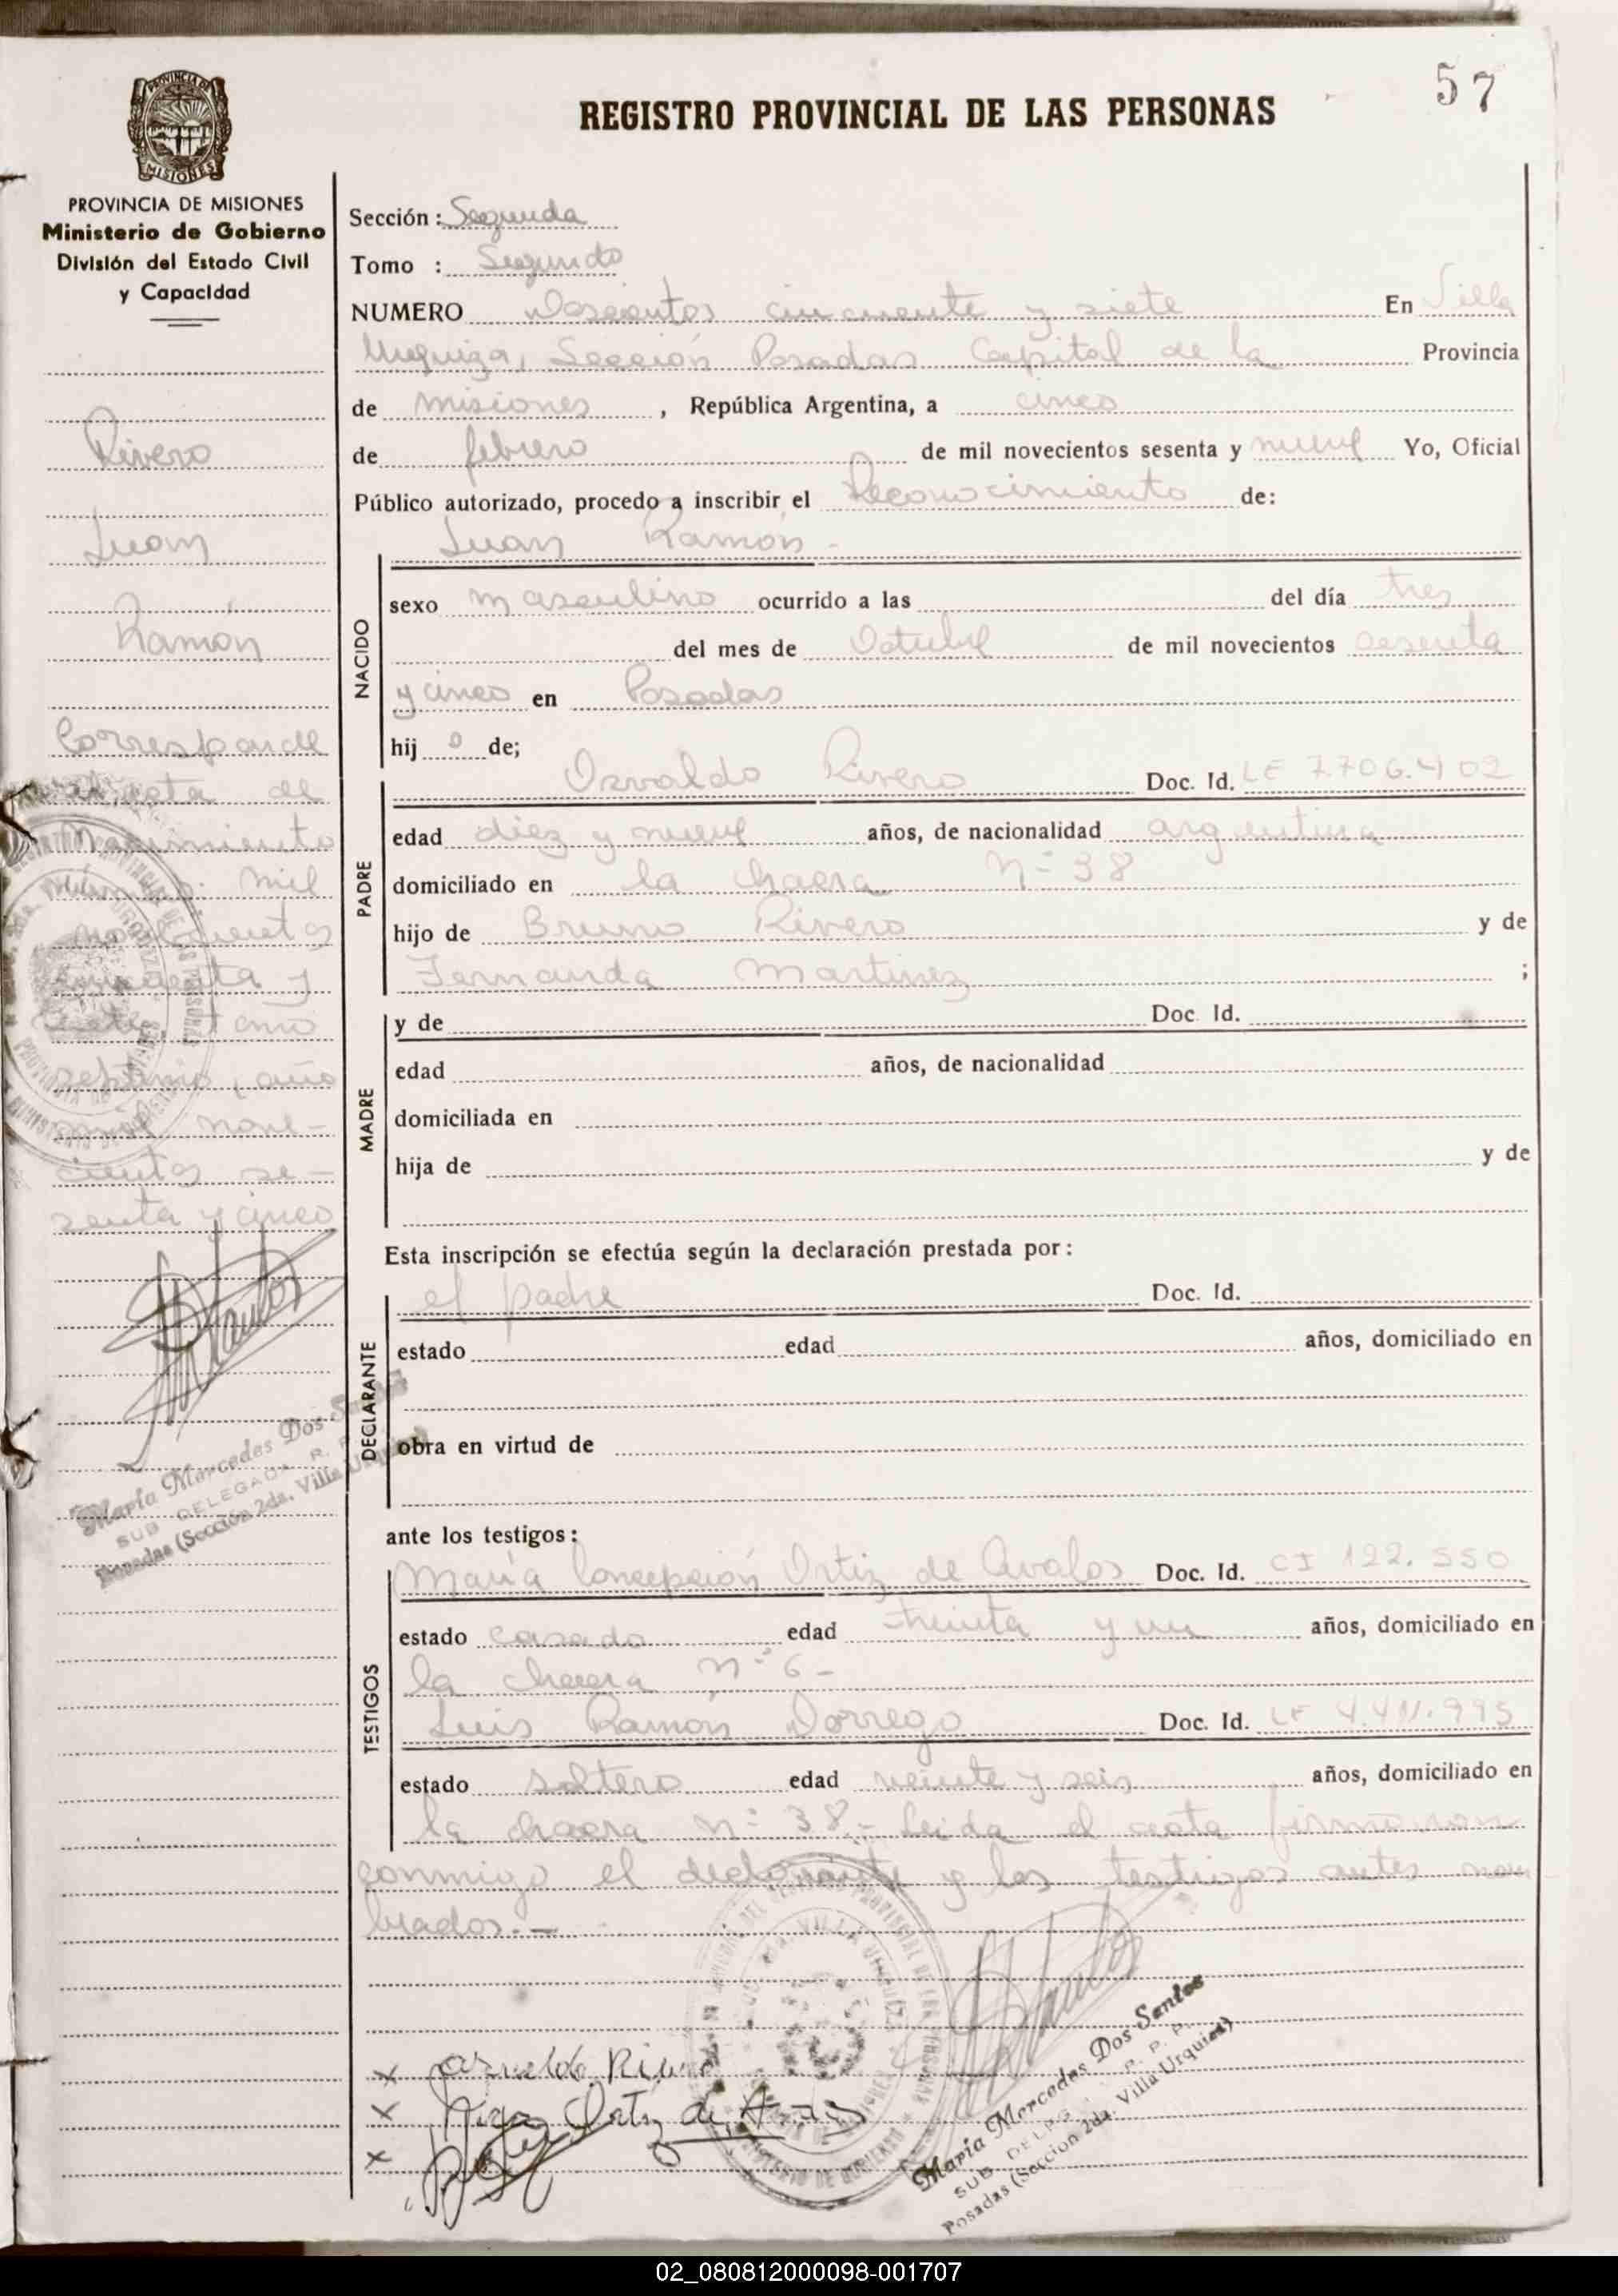 57
PROVINCIA DE
MISIONES
REGISTRO PROVINCIAL DE LAS PERSONAS
PROVINCIA DE MISIONES
Ministerio de Gobierno
División del Estado Civil
y Capacidad
Rivero
Juan
Ramón
Corresponde
acta de
Nacimiento
número mil
cincuenta y
siete tomo
septimo, año
mil nove-
cientos se-
senta y cinco
María Mercedes Dos Santos
SUB DELEGADA R. P.
Posadas (Sección 2da. Villa Urquiza)
Sección: Segunda
Tomo : Segundo
NUMERO Doscientos cincuenta y siete En Villa
Urquiza, Sección Posadas Capital de la Provincia
de Misiones, República Argentina, a cinco
de febrero de mil novecientos sesenta y nueve Yo, Oficial
Público autorizado, procedo a inscribir el Reconocimiento de:
Juan Ramón -
NACIDO
sexo masculino ocurrido a las del día tres
del mes de Octubre de mil novecientos sesenta
y cinco en Posadas
hijo de;
PADRE
Osvaldo Rivero Doc. Id. LE 7.706.402
edad diez y nueve años, de nacionalidad argentina
domiciliado en la chacra Nº 38
hijo de Bruno Rivero y de
Fernanda Martinez ;
MADRE
y de Doc. Id.
edad años, de nacionalidad
domiciliada en
hija de y de
Esta inscripción se efectúa según la declaración prestada por:
DECLARANTE
el padre Doc. Id.
estado edad años, domiciliado en
obra en virtud de
ante los testigos:
TESTIGOS
María Concepción Ortiz de Avalos Doc. Id. CI 122.550
estado casado edad treinta y un años, domiciliado en
la chacra Nº 6 -
Luis Ramón Dorrego Doc. Id. LE 4.411.995
estado soltero edad veinte y seis años, domiciliado en
la chacra Nº 38.- Leida el acta firmaron
conmigo el declarante y los testigos antes nom
brados.-
x Osvaldo Rivero
x Ortiz de
x
María Mercedes Dos Santos
SUB DELEG R. P. P.
Posadas (Sección 2da. Villa Urquiza)
02_080812000098-001707